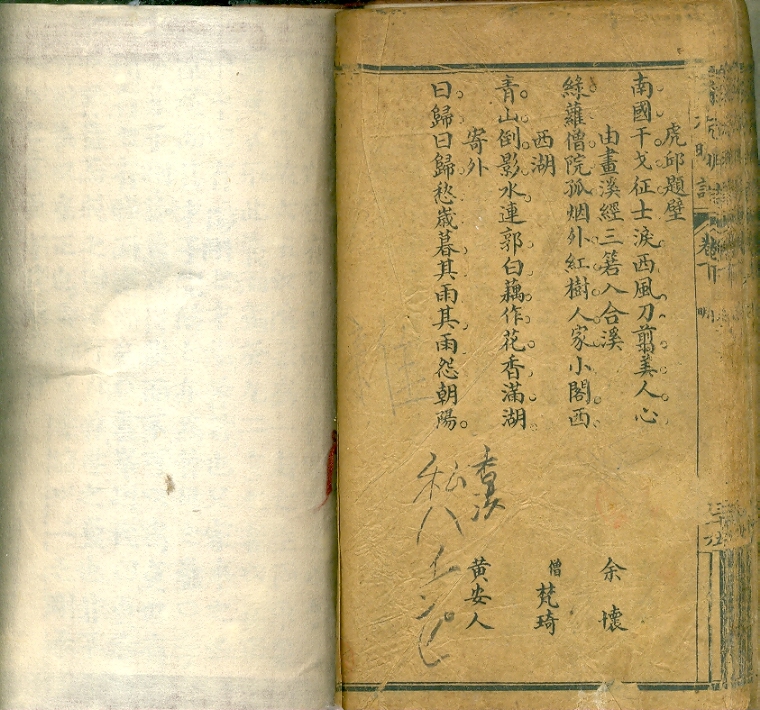 卷下
明
虎邱題壁
南國干戈征士淚西風刀翦美人心
由畫溪經三箬入合溪 余懷
綠蘿僧院孤烟外紅樹人家小閣西
西湖 僧梵琦
青山倒影水連郭白藕作花香滿湖
寄外 黃安人
曰歸曰歸愁歲暮其雨其雨怨朝陽